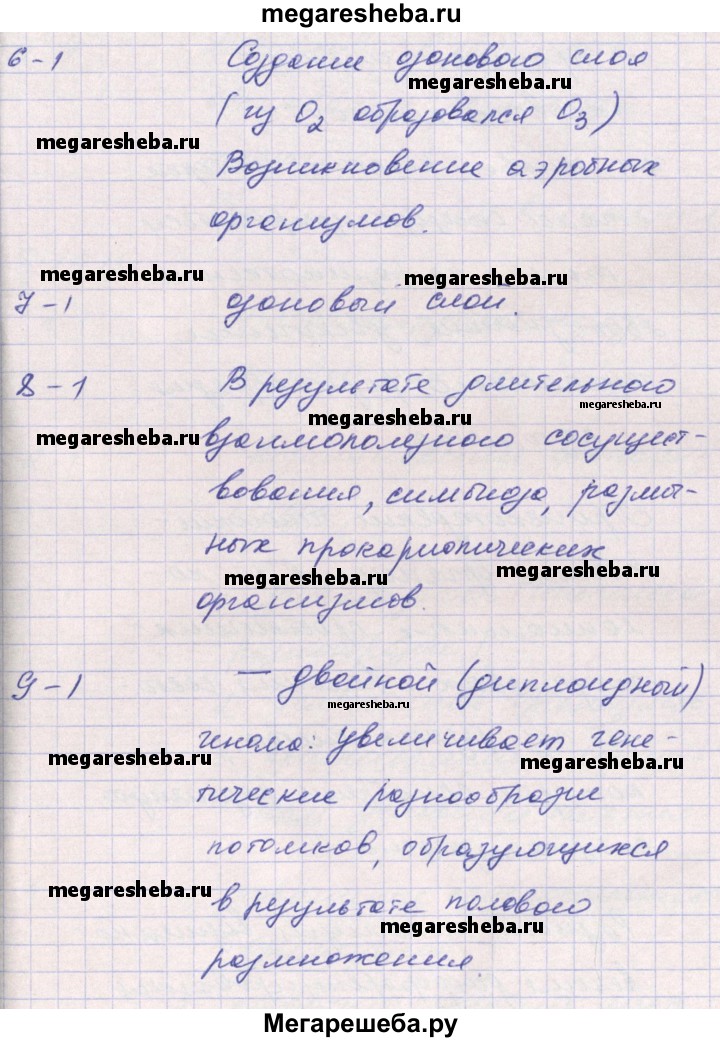 megaresheba.ru
6-1 Создание озонового слоя
megaresheba.ru
(из O₂ образовался O₃)
megaresheba.ru
Возникновение аэробных
организмов.
megaresheba.ru megaresheba.ru
7-1 озоновый слой.
8-1 В результате длительного
megaresheba.ru megaresheba.ru
megaresheba.ru взаимополезного сосущест-
вования, симбиоза, различ-
ных прокариотических
megaresheba.ru megaresheba.ru
организмов.
9-1 — двойной (диплоидный)
megaresheba.ru
генома: увеличивает гене-
megaresheba.ru megaresheba.ru
тические разнообразие
потомков, образующихся
megaresheba.ru в результате полового
megaresheba.ru
размножения
megaresheba.ru megaresheba.ru
Мегарешеба.ру